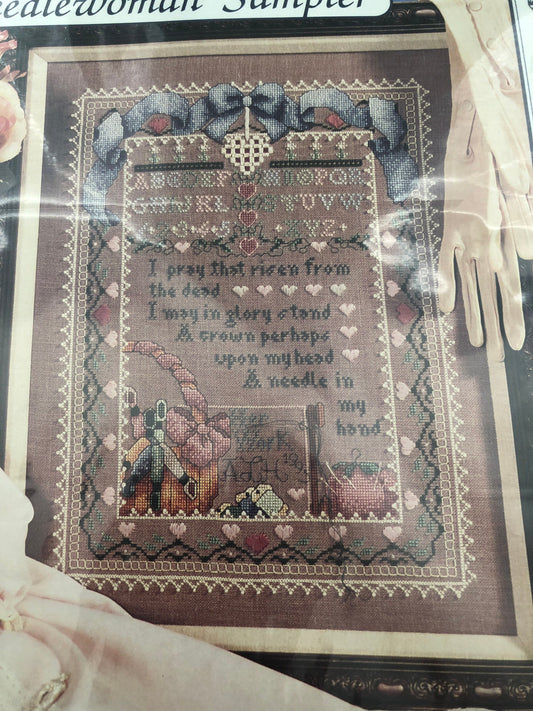 Needlewoman Sampler
ABCDEF
I pray that risen from
the dead
I may in glory stand
A crown perhaps
upon my head
A needle in
my
hand
Her
Work